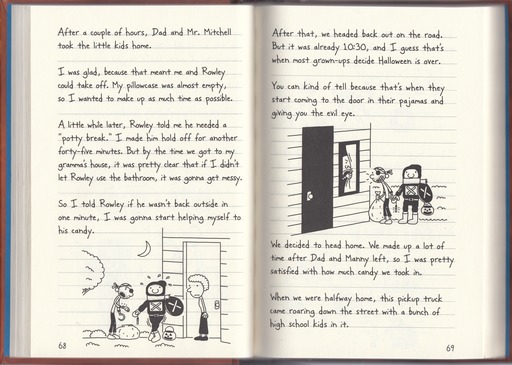 After a couple of hours, Dad and Mr. Mitchell
took the little kids home.
I was glad, because that meant me and Rowley
could take off. My pillowcase was almost empty,
so I wanted to make up as much time as possible.
A little while later, Rowley told me he needed a
"potty break." I made him hold off for another
forty-five minutes. But by the time we got to my
gramma's house, it was pretty clear that if I didn't
let Rowley use the bathroom, it was gonna get messy.
So I told Rowley if he wasn't back outside in
one minute, I was gonna start helping myself to
his candy.
68
After that, we headed back out on the road.
But it was already 10:30, and I guess that's
when most grown-ups decide Halloween is over.
You can kind of tell because that's when they
start coming to the door in their pajamas and
giving you the evil eye.
We decided to head home. We made up a lot of
time after Dad and Manny left, so I was pretty
satisfied with how much candy we took in.
When we were halfway home, this pickup truck
came roaring down the street with a bunch of
high school kids in it.
69